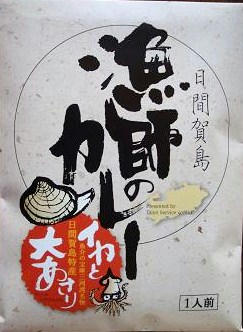 日間賀島
漁師の
カレー
イカと
大あさり
日間賀島特産
Presented by
1人前